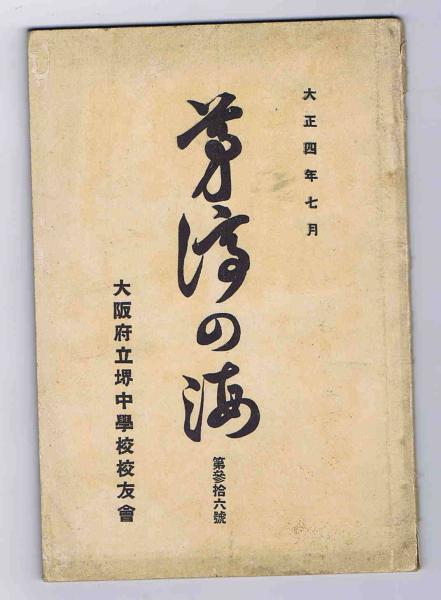 大正四年七月
茅渟の海
第參拾六號
大阪府立堺中學校校友會